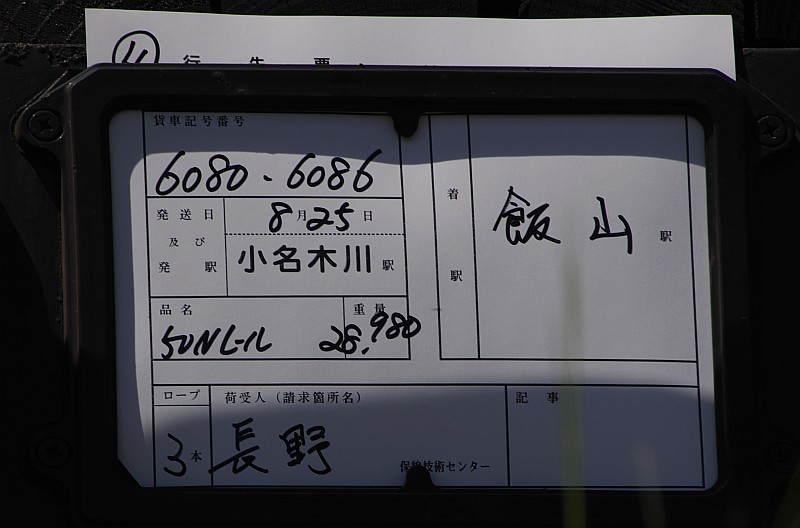 貨車記号番号
6080.6086
発送日
及び
発駅
8月25日
小名木川駅
品名
50Nレール
重量
28.980
着駅
飯山駅
ロープ
3本
荷受人(請求箇所名)
長野
保線技術センター
記事